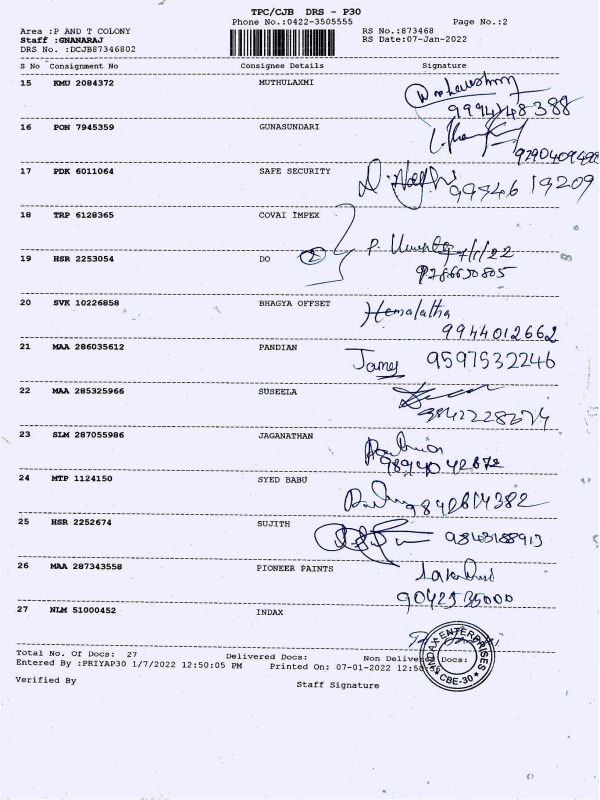 TPC/CJB DRS - P30
Phone No.:0422-3505555 Page No.:2
Area :P AND T COLONY RS No.:873468
Staff :GNANARAJ RS Date:07-Jan-2022
DRS No. :DCJB87346802
S No Consignment No Consignee Details Signature
15 KMU 2084372 MUTHULAXMI
16 PON 7945359 GUNASUNDARI
9790409498
17 PDK 6011064 SAFE SECURITY
99946 19209
18 TRP 6128365 COVAI IMPEX
19 HSR 2253054 DO 2 7/1/22
20 SVK 10226858 BHAGYA OFFSET Hemalatha
9944012662
21 MAA 286035612 PANDIAN James 9597532246
22 MAA 285325966 SUSEELA
23 SLM 287055986 JAGANATHAN
9894042672
24 MTP 1124150 SYED BABU
25 HSR 2252674 SUJITH 9843188913
26 MAA 287343558 PIONEER PAINTS
9042535000
27 NLM 51000452 INDAX
INDAX ENTERPRISES
CBE-30
Total No. Of Docs: 27 Delivered Docs: Non Delivered Docs:
Entered By :PRIYAP30 1/7/2022 12:50:05 PM Printed On: 07-01-2022 12:50:
Verified By Staff Signature